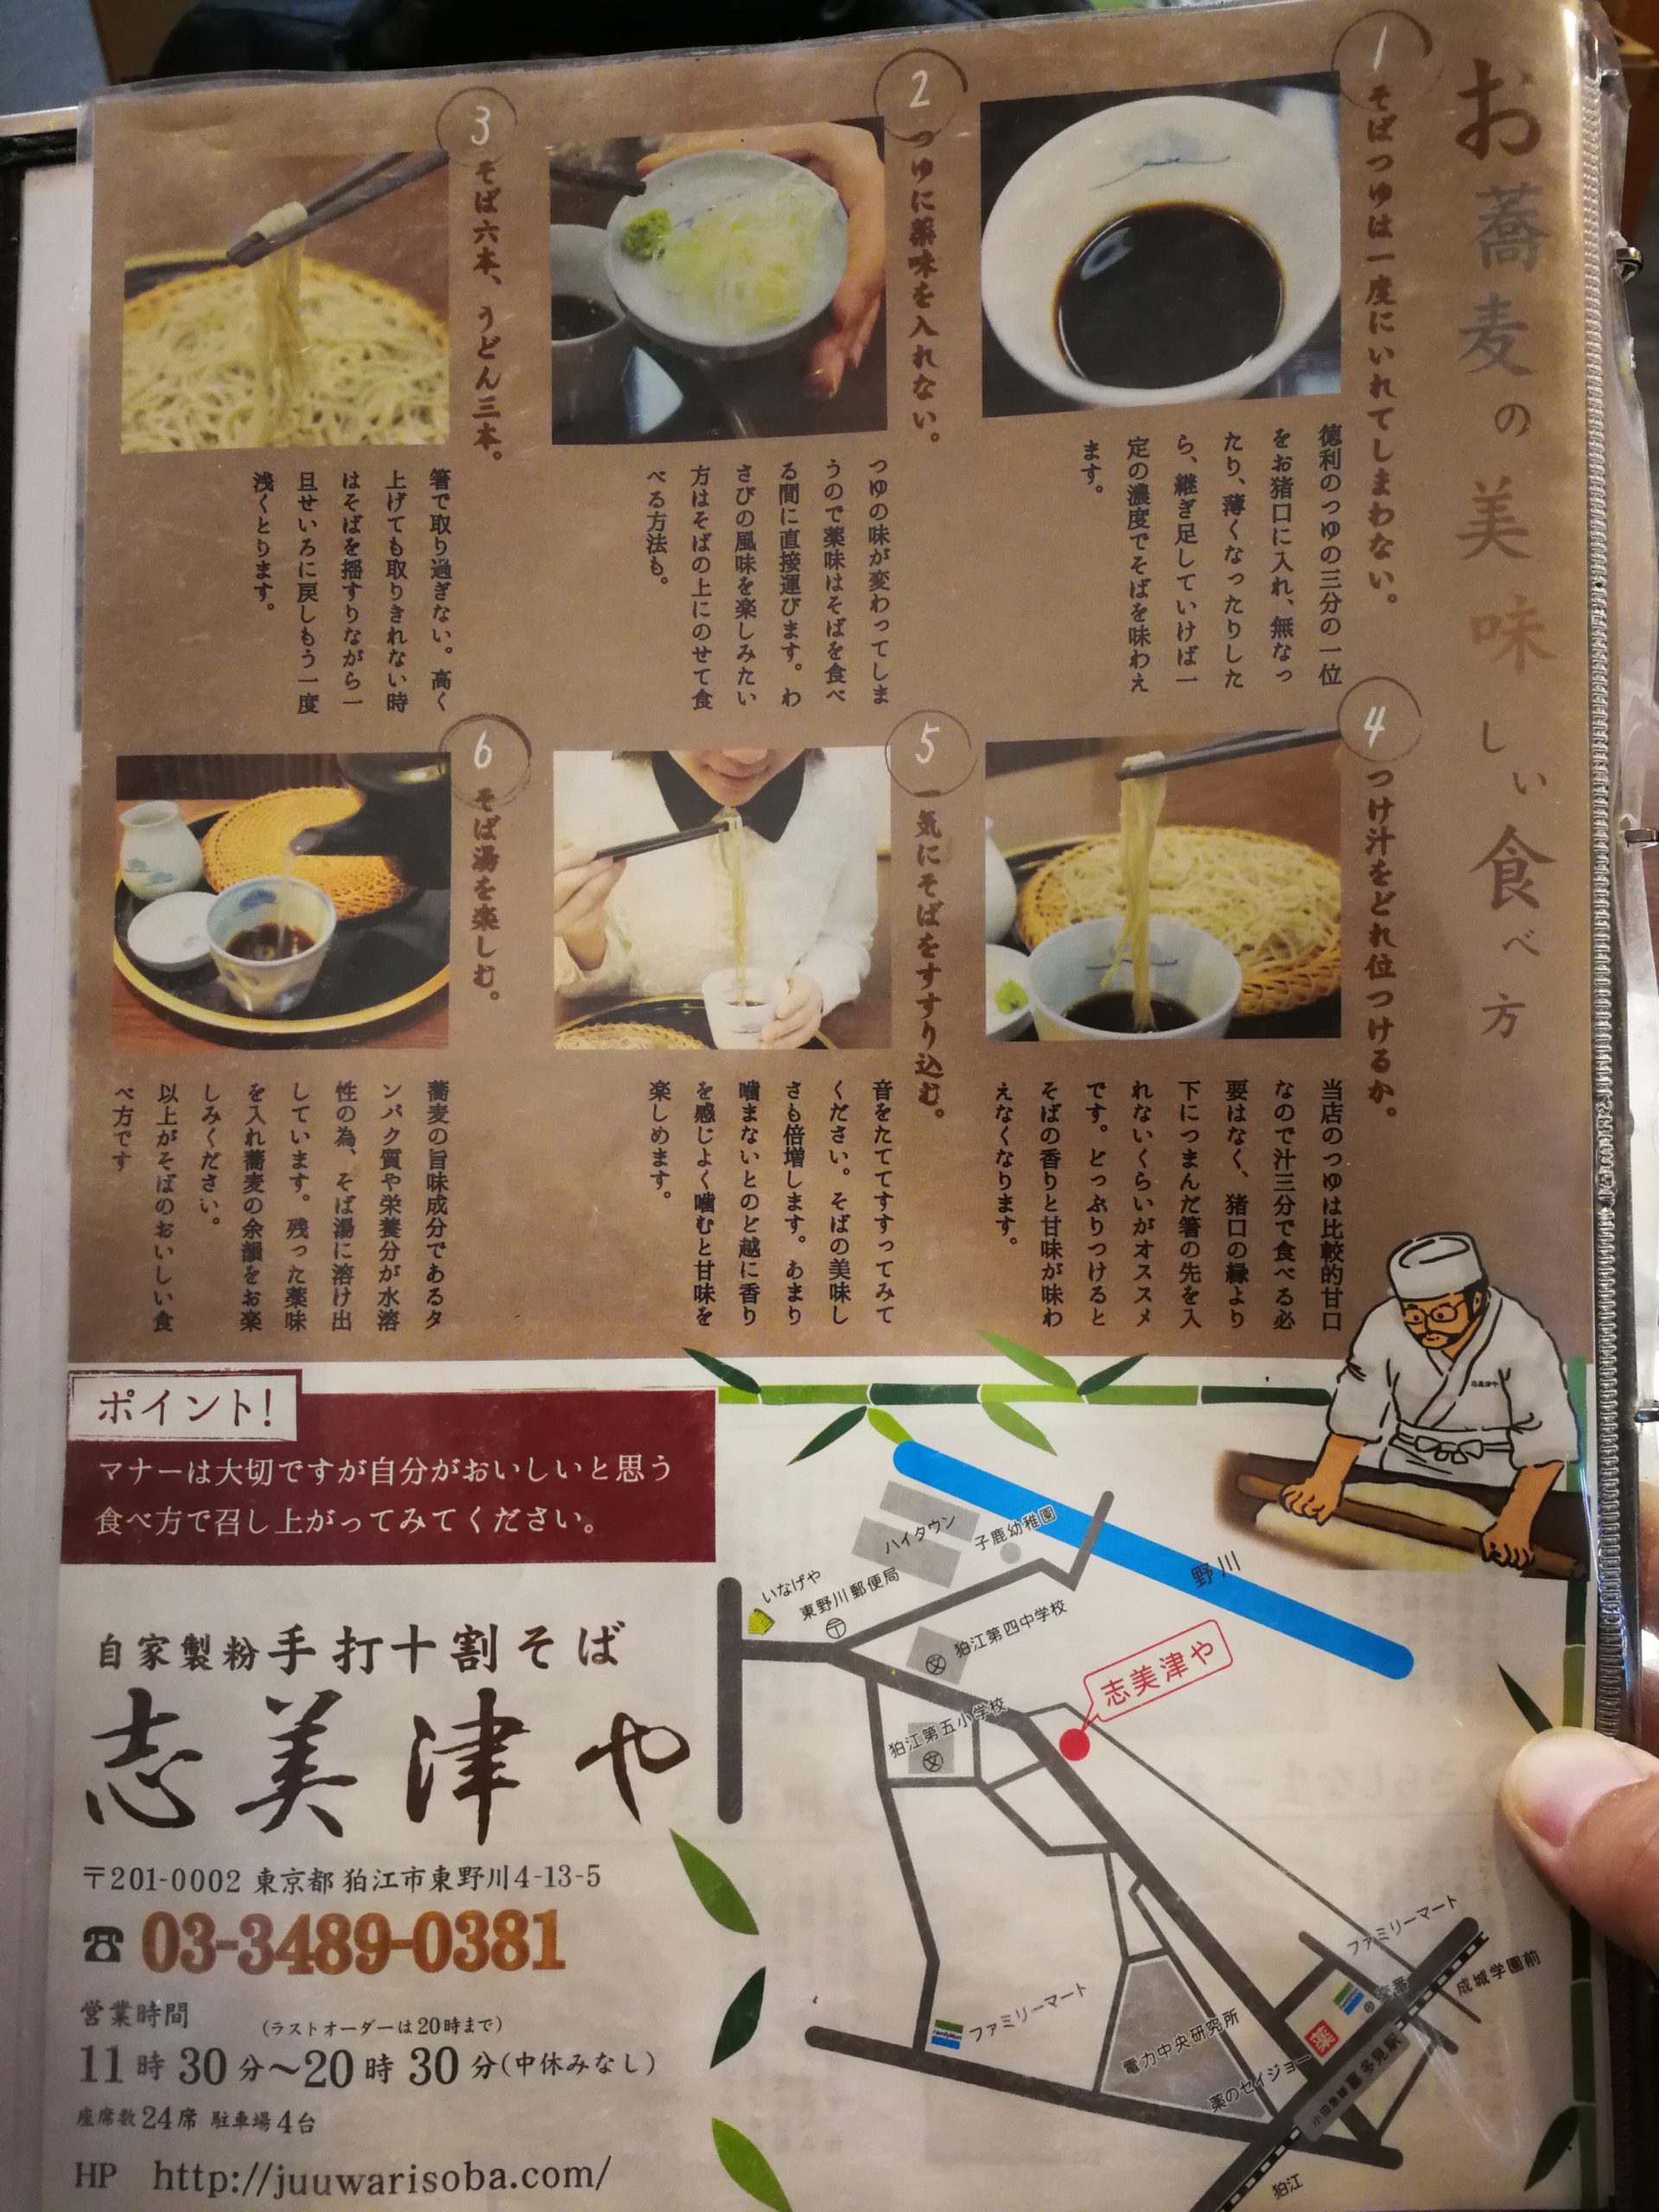 お蕎麦の美味しい食べ方
1
そばつゆは一度にいれてしまわない。
徳利のつゆの三分の一位
をお猪口に入れ、無なっ
たり、薄くなったりした
ら、継ぎ足していけば一
定の濃度でそばを味わえ
ます。
2
つゆに薬味を入れない。
つゆの味が変わってしま
うので薬味はそばを食べ
る間に直接運びます。わ
さびの風味を楽しみたい
方はそばの上にのせて食
べる方法も。
3
そば六本、うどん三本。
箸で取り過ぎない。高く
上げても取りきれない時
はそばを揺すりながら一
旦せいろに戻しもう一度
浅くとります。
4
つけ汁をどれ位つけるか。
当店のつゆは比較的甘口
なので汁三分で食べる必
要はなく、猪口の縁より
下につまんだ箸の先を入
れないくらいがオススメ
です。どっぷりつけると
そばの香りと甘味が味わ
えなくなります。
5
一気にそばをすすり込む。
音をたててすすってみて
ください。そばの美味し
さも倍増します。あまり
噛まないとのど越に香り
を感じよく噛むと甘味を
楽しめます。
6
そば湯を楽しむ。
蕎麦の旨味成分であるタ
ンパク質や栄養分が水溶
性の為、そば湯に溶け出
しています。残った薬味
を入れ蕎麦の余韻をお楽
しみください。
以上がそばのおいしい食
べ方です
ポイント!
マナーは大切ですが自分がおいしいと思う
食べ方で召し上がってみてください。
自家製粉手打十割そば
志美津や
〒201-0002 東京都狛江市東野川4-13-5
☎ 03-3489-0381
営業時間 (ラストオーダーは20時まで)
11時30分〜20時30分(中休みなし)
座席数24席 駐車場4台
HP http://juuwarisoba.com/
志美津や
ハイタウン
子鹿幼稚園
野川
いなげや
東野川郵便局
〒
狛江第四中学校
文
狛江第五小学校
文
志美津や
ファミリーマート
FamilyMart
ファミリーマート
交番
成城学園前
電力中央研究所
薬
薬のセイジョー
小田急線喜多見駅
狛江